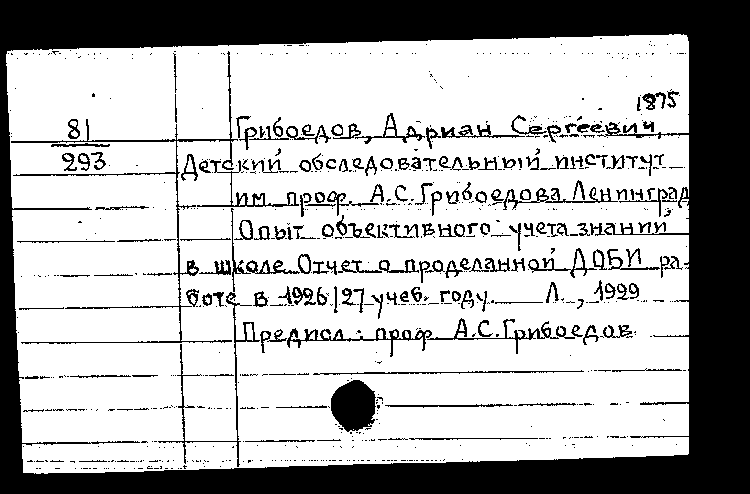 1875
81
293
Грибоедов, Адриан Сергеевич,
Детский обследовательный институт
им. проф. А.С. Грибоедова. Ленинград
Опыт объективного учета знаний
в школе. Отчет о проделанной ДОБИ ра-
боте в 1926/27 учеб. году. Л., 1929
Предисл.: проф. А.С. Грибоедов